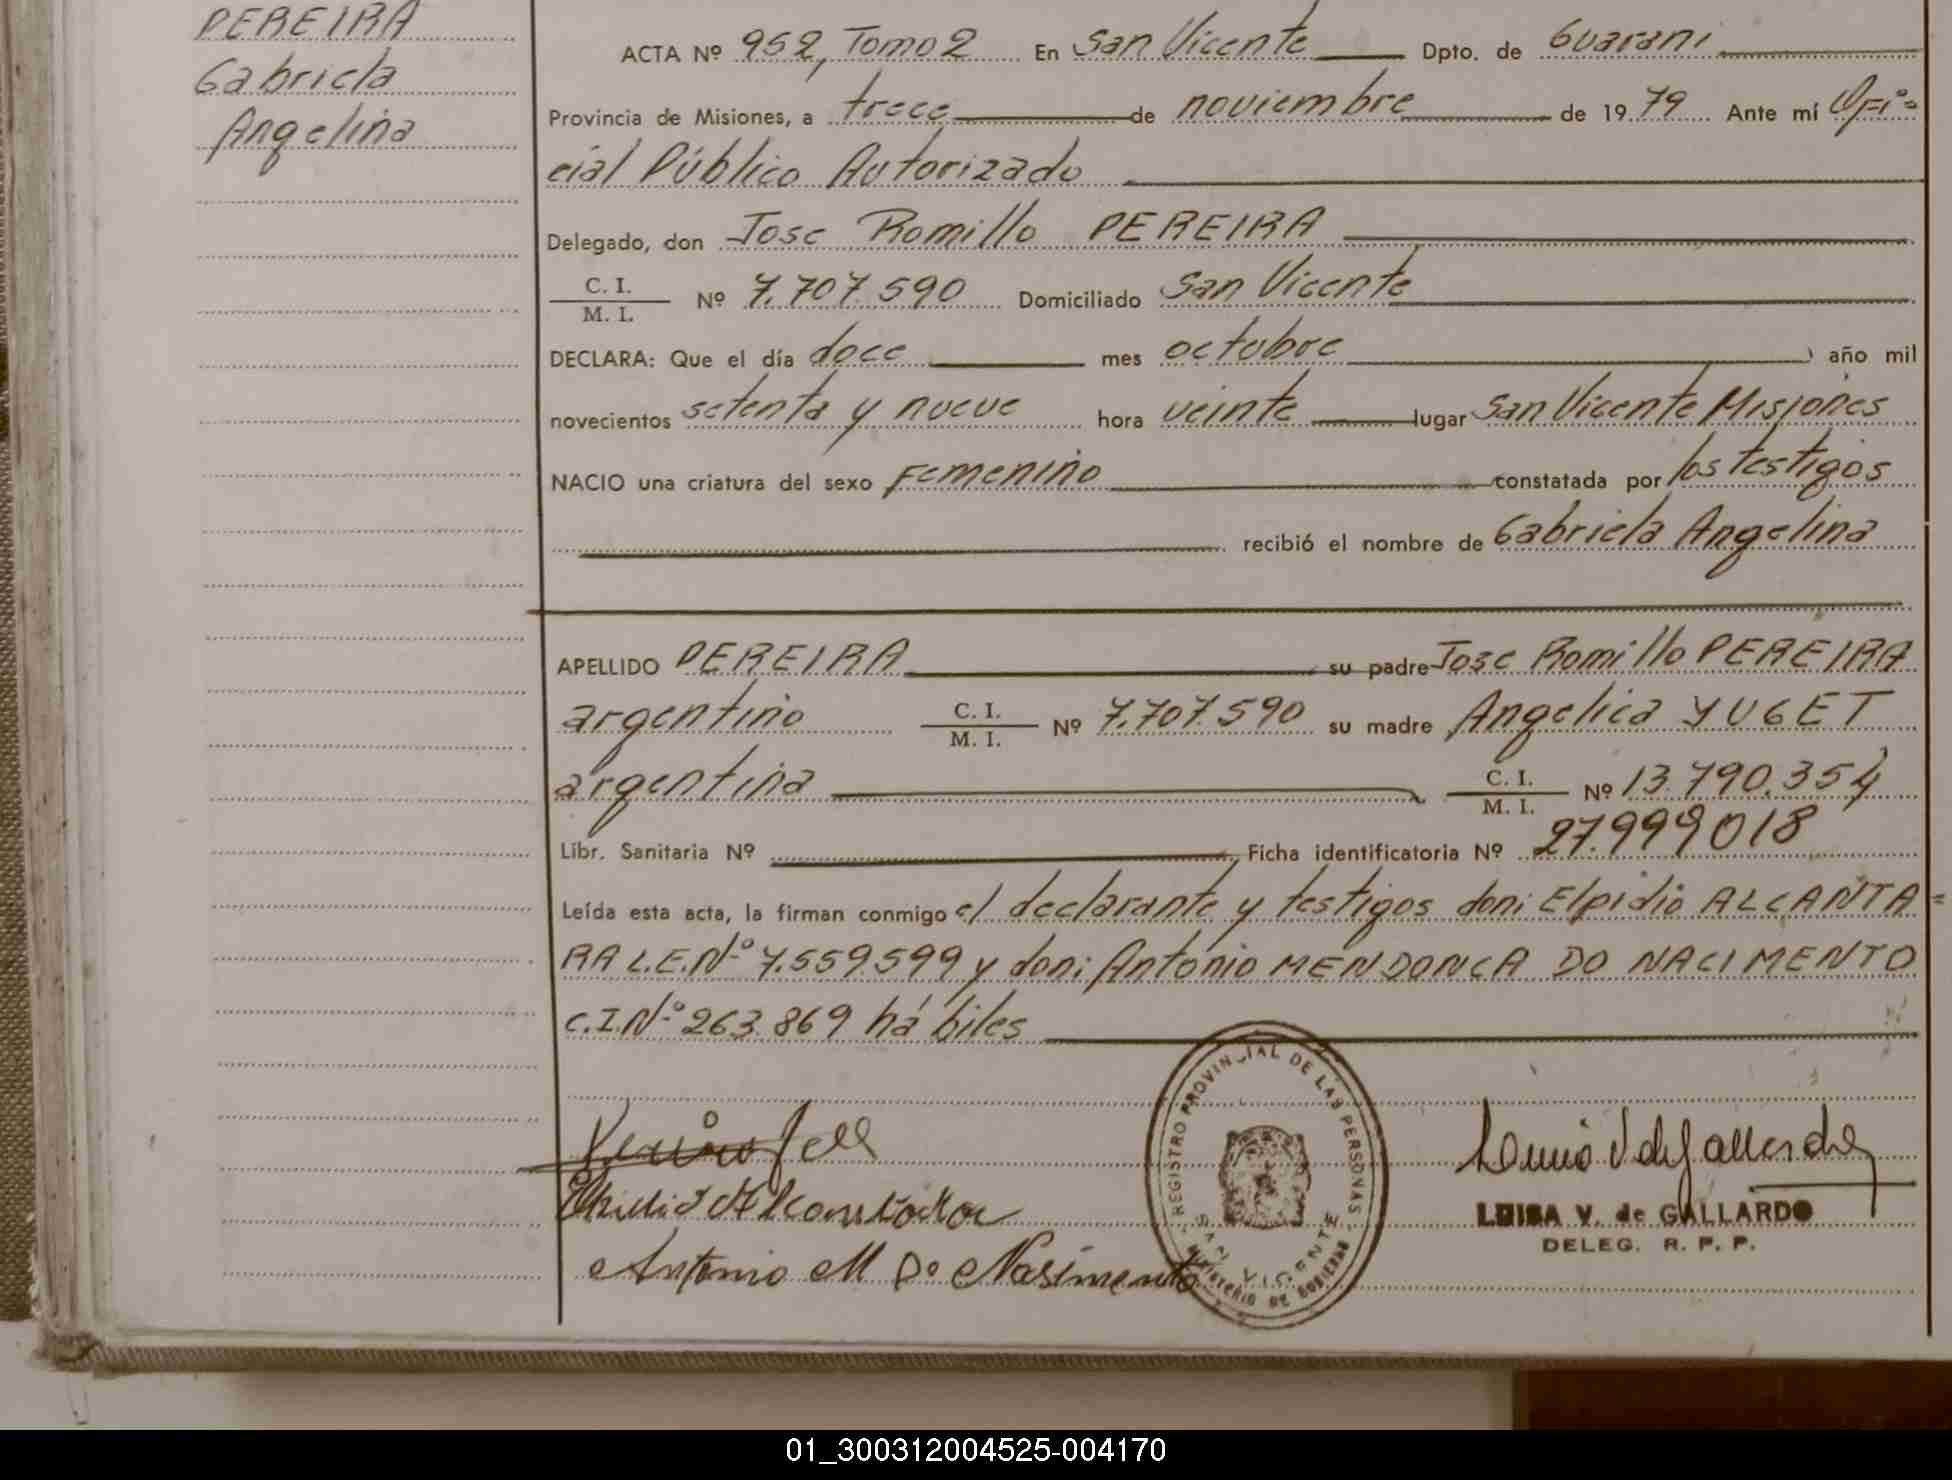 PEREIRA
Gabriela
Angelina
ACTA Nº 952, Tomo 2 En San Vicente Dpto. de Guarani
Provincia de Misiones, a trece de noviembre de 1979 Ante mí Ofi=
cial Público Autorizado
Delegado, don Jose Romillo PEREIRA
C. I.
M. I. Nº 7.707.590 Domiciliado San Vicente
DECLARA: Que el día doce mes octubre año mil
novecientos setenta y nueve hora veinte lugar San Vicente Misiones
NACIO una criatura del sexo Femenino constatada por los testigos
recibió el nombre de Gabriela Angelina
APELLIDO PEREIRA su padre Jose Romillo PEREIRA
argentino C. I.
M. I. Nº 7.707.590 su madre Angelica YUGET
argentina C. I.
M. I. Nº 13.790.354
Libr. Sanitaria Nº Ficha identificatoria Nº 27.999018
Leída esta acta, la firman conmigo el declarante y testigos don: Elpidio ALCANTA=
RA L.E.Nº 7.559.599 y don: Antonio MENDONCA DO NACIMENTO
C.I.Nº 263.869 hábiles
Antonio M Do Nasimento
REGISTRO PROVINCIAL DE LAS PERSONAS
SAN VICENTE
MINISTERIO DE GOBIERNO
LUISA V. de GALLARDO
DELEG. R. P. P.
01_300312004525-004170